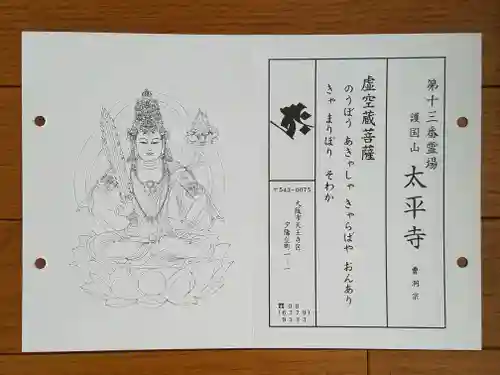 第十三番霊場
護国山 太平寺 曹洞宗
虚空蔵菩薩
のうぼう あきゃしゃ きゃらばや おんあり
きゃ まりぼり そわか
〒543-0075
大阪市天王寺区
夕陽丘町一-一
☎06
(6779)
9333